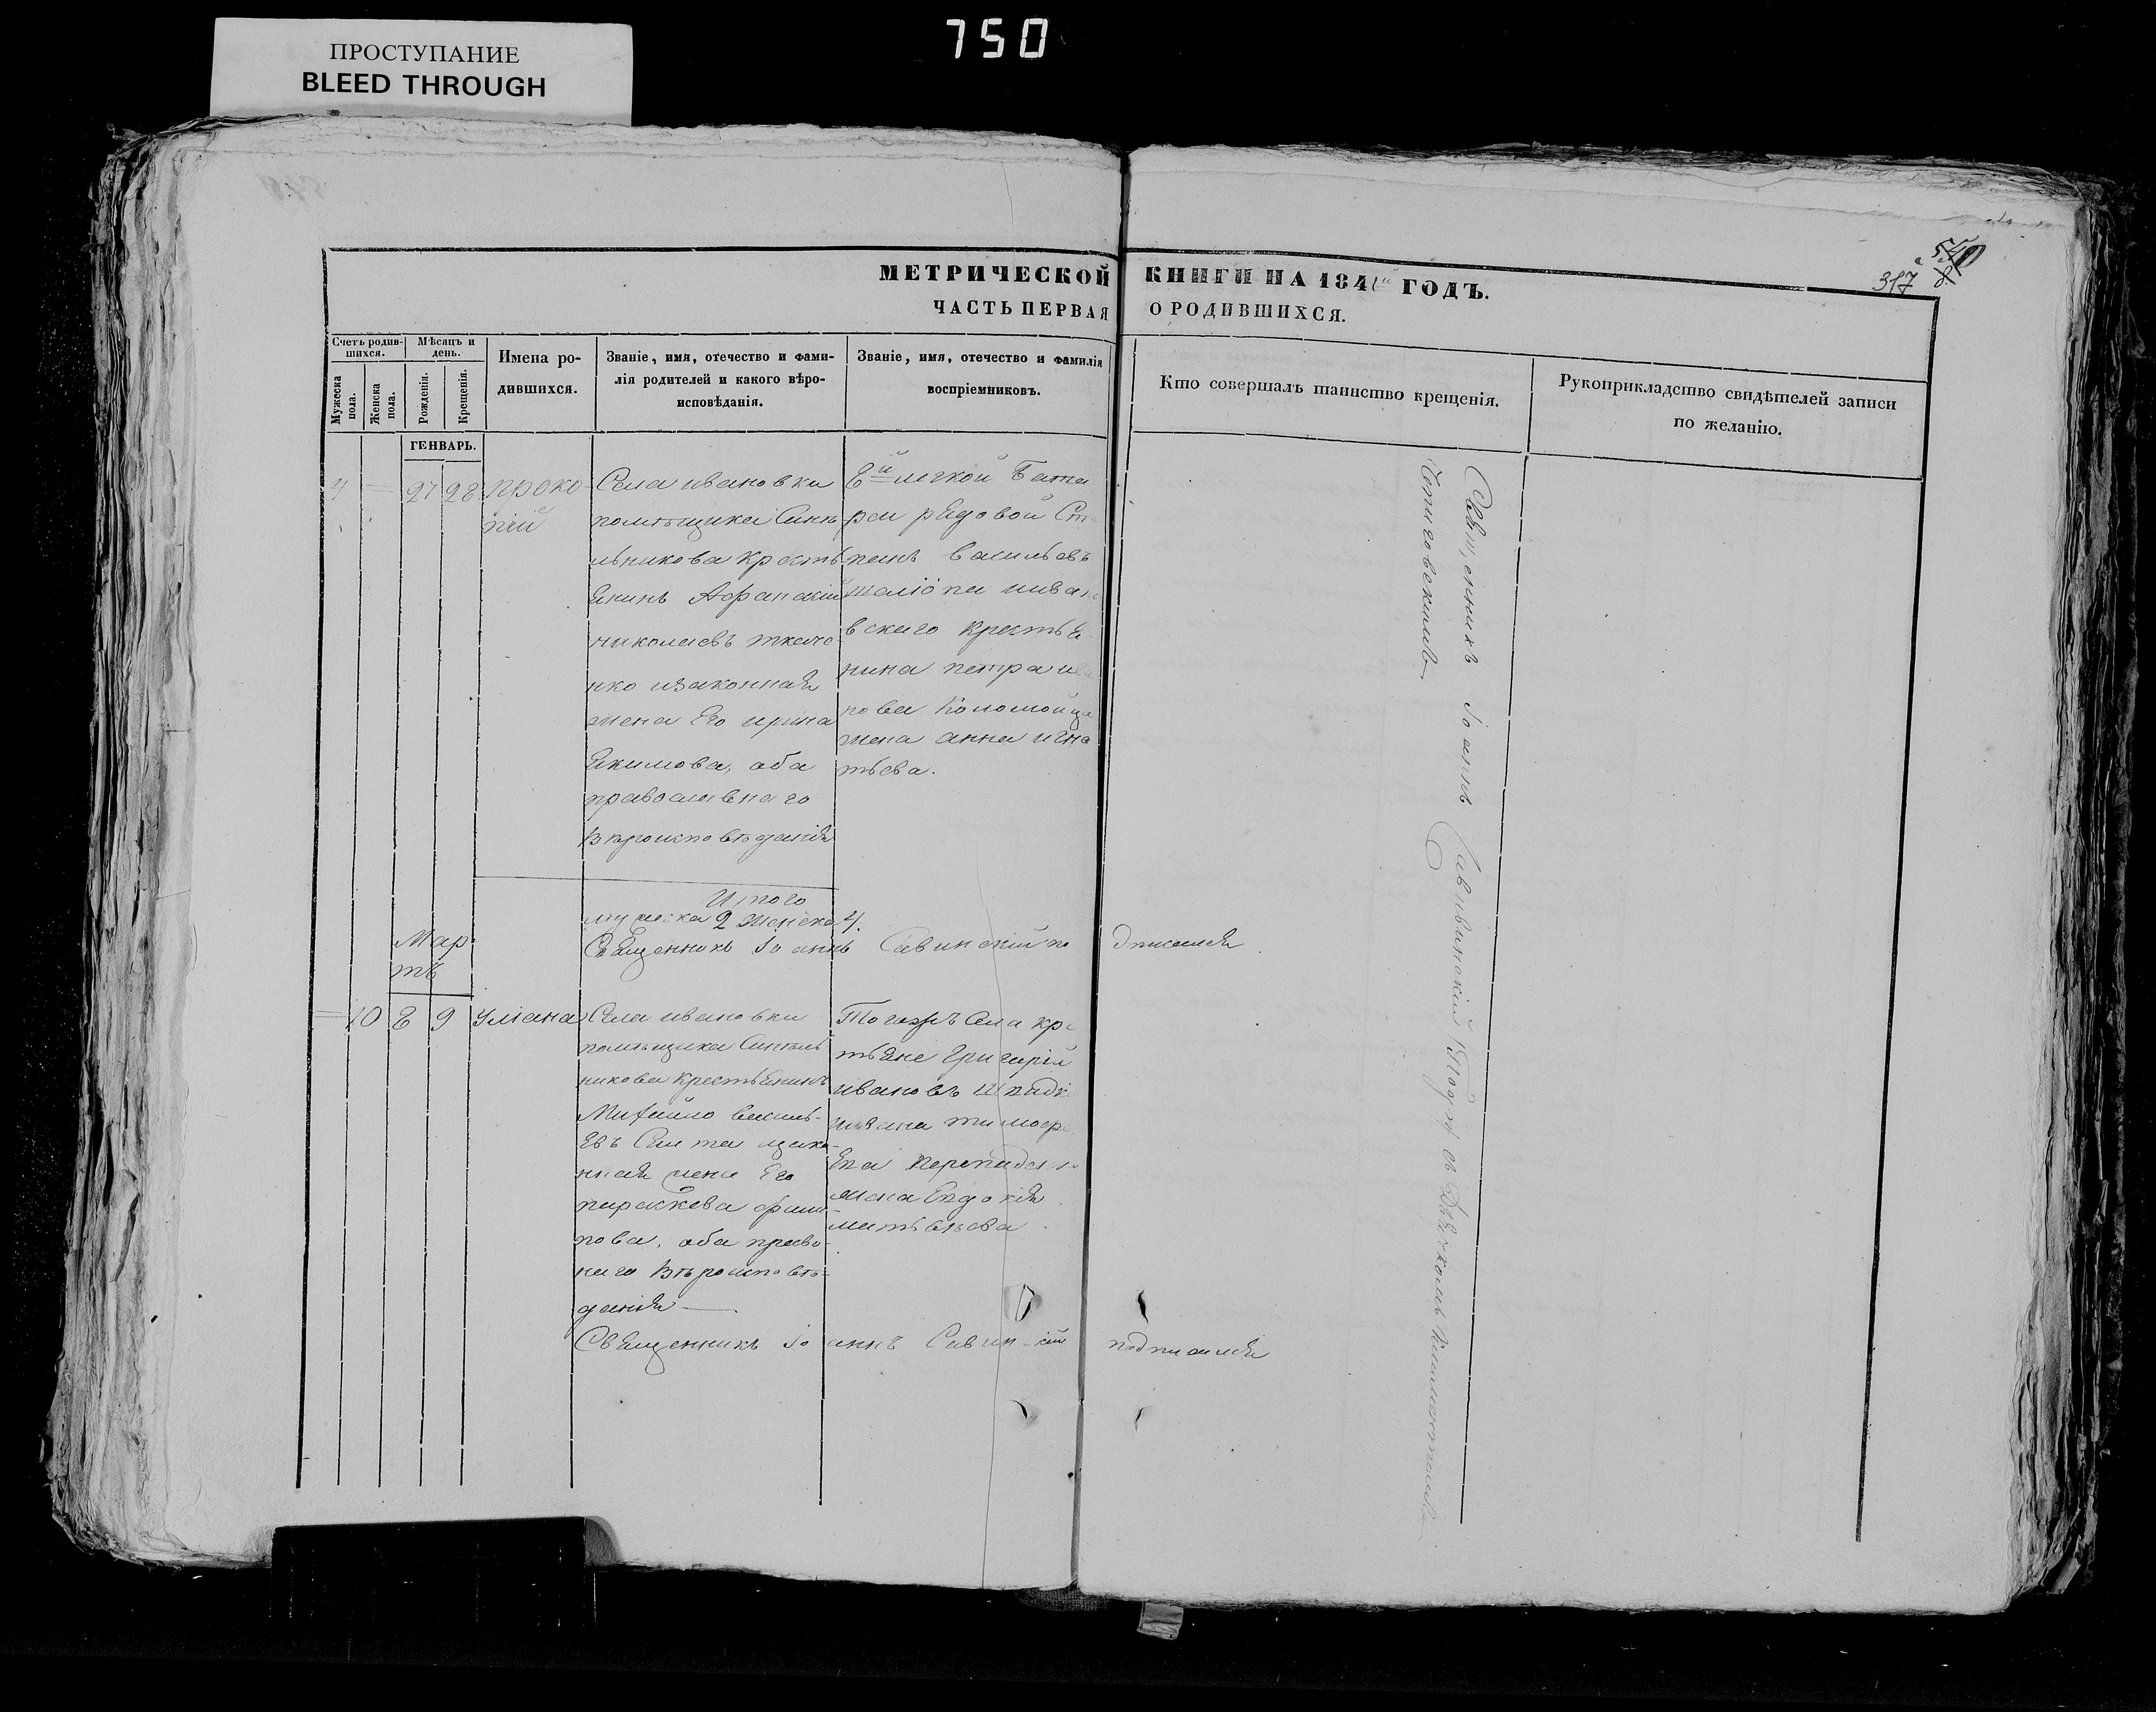 750
ПРОСТУПАНИЕ
BLEED THROUGH
540
317
МЕТРИЧЕСКОЙ КНИГИ НА 1841й ГОДЪ.
ЧАСТЬ ПЕРВАЯ О РОДИВШИХСЯ.
Счетъ родив-
шихся.
Мужеска
пола.
Женска
пола.
Мѣсяцъ и
день.
Рожденія.
Крещенія.
Имена ро-
дившихся.
Званіе, имя, отечество и фами-
лія родителей и какого вѣро-
исповѣданія.
Званіе, имя, отечество и фамилія
воспріемниковъ.
Кто совершалъ таинство крещенія.
Рукоприкладство свидѣтелей записи
по желанію.
ГЕНВАРЬ.
4 = 27 28
Проко-
пій
Села Ивановки
помѣщика Синѣ
льникова Крестѣ
янинъ Афанасій
николаевъ ткаче
нко изаконная
жена Его ирина
Якимова, оба
православнаго
Вѣроисповѣданія
й
легкой Бата
реи рядовой Сте
панъ васильевъ
иива
вскаго Крестья
нина петра
нова Коломойца
жена анна игна
тьева.
Священникъ Іоаннъ Савинскій
Итого
мужеска 2 женска 4.
Священникъ Іоаннъ Савинскій подписался
Мар
тъ
= 10 8 9
Уліана
Села ивановки
помѣщика Синѣль
никова Крестьянинъ
Михайло василь-
евъ изако-
нная жена Его
параскева фили-
пова, оба право
наго Вѣроисповѣ-
данія
Тогожъ Села кре
тьяне Григорій
ивановъ
ивана тимоф
жена Евдокія
матвѣева
Священникъ Іоаннъ Савинскій подписался